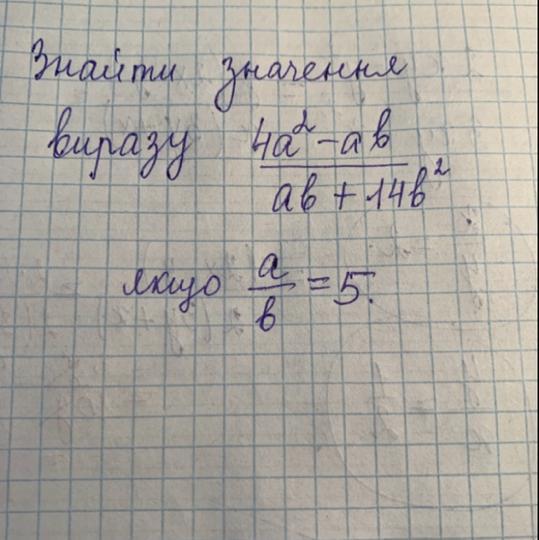 Знайти значення
виразу (4a² - ab)/(ab + 14b²)
якщо a/b = 5.